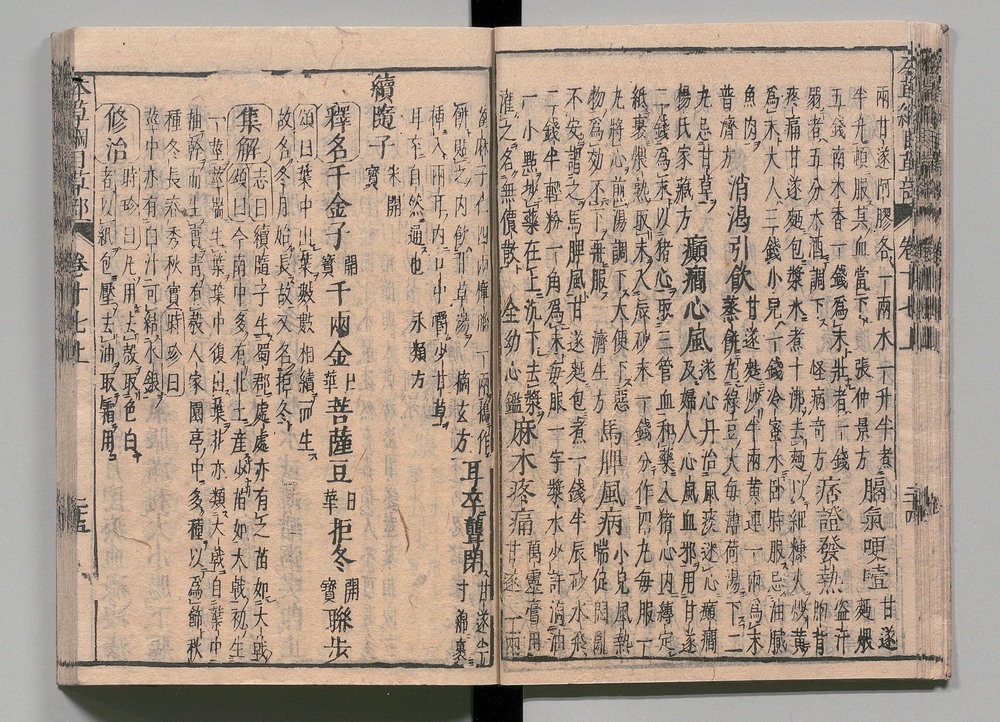 兩甘遂阿膠各一兩水一下升半煮
半升頓服其血當下張仲景方膈氣哽噎甘遂麪煨
五錢南木香一錢爲末壯者一錢
弱者五分水酒調下怪病奇方痞證發熱盜汗胸背
疼痛甘遂麪包漿水煮十沸去麪以細糠火炒黃
爲末大人三錢小兒一錢冷蜜水臥時服忌油膩
魚肉普濟方消渴引飲甘遂麩炒半兩黃連一兩爲末
蒸餅丸綠豆大每薄荷湯下二
丸忌甘草楊氏家藏方癲癇心風遂心丹治風痰迷心癲癇
及婦人心風血邪用甘遂
二錢爲末以猪心取三管血和藥入猪心内縳定
紙裹煨熟取末入辰砂末一錢分作四丸每服一
丸將心煎湯調下大便下惡
物爲効不下再服濟生方馬脾風病小兒風熱
喘促悶亂
不安謂之馬脾風甘遂麪包煮一錢半辰砂水飛
二錢半輕粉一角爲末每服一字漿水少許滴油
一小點抄藥在上沉下去漿
灌之名無價散全幼心鑑麻木疼痛萬靈膏用
甘遂二兩
萆麻子仁四兩樟腦一兩搗作
餅貼之内飲甘草湯摘玄方耳卒聾閉甘遂半寸綿裹
插入兩耳内口中嚼少甘草
耳卒自然通也永類方
續隨子宋開寶
釋名千金子開寶千兩金日華菩薩豆日華拒冬開寶聯步
頌曰葉中出葉數數相續而生
故名冬月始長故又名拒冬
集解志曰續隨子生蜀郡處處亦有之苗如大戟
頌曰今南中多有北土產少苗如大戟初生
一莖莖端生葉葉中復出葉
種冬長春秀秋實時珍曰
莖中亦有白汁可結水銀
修治時珍曰凡用去殼取色白
者以紙包壓去油取霜用
本草綱目草部
卷十七上